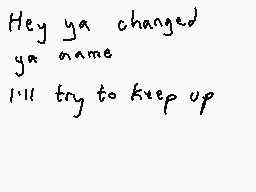 Hey ya changed
ya name
I'll try to keep up